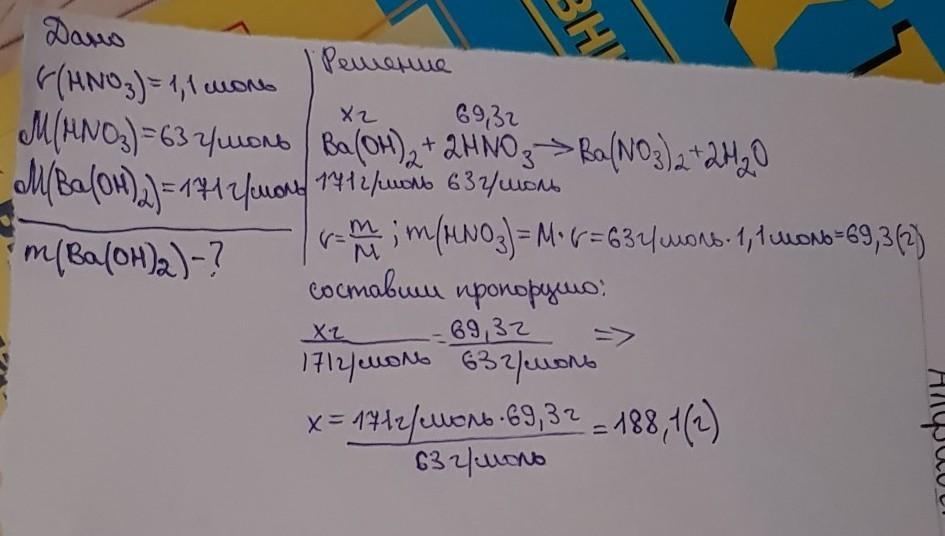 Дано
ν(HNO₃)=1,1моль
M(HNO₃)=63г/моль
M(Ba(OH)₂)=171г/моль
m(Ba(OH)₂)-?
Решение
xг 69,3г
Ba(OH)₂+2HNO₃→Ba(NO₃)₂+2H₂O
171г/моль 63г/моль
ν=m/M; m(HNO₃)=M·ν=63г/моль·1,1моль=69,3(г)
составим пропорцию:
xг/171г/моль=69,3г/63г/моль =>
x=171г/моль·69,3г/63г/моль=188,1(г)